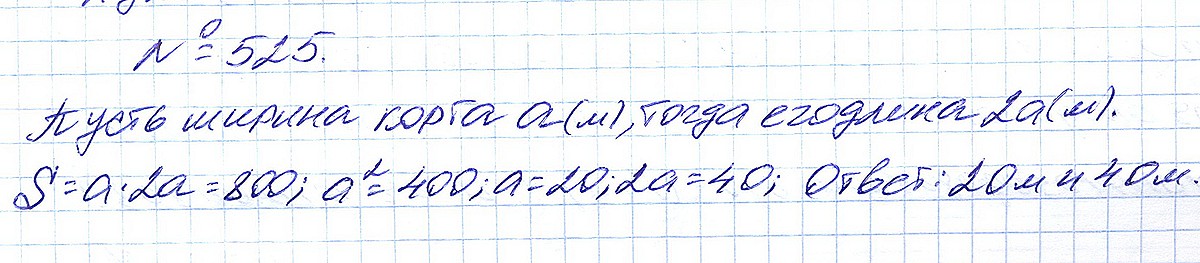 № 525.
Пусть ширина корта a(м), тогда его длина 2a(м).
S = a · 2a = 800; a² = 400; a = 20; 2a = 40; Ответ: 20м и 40м.